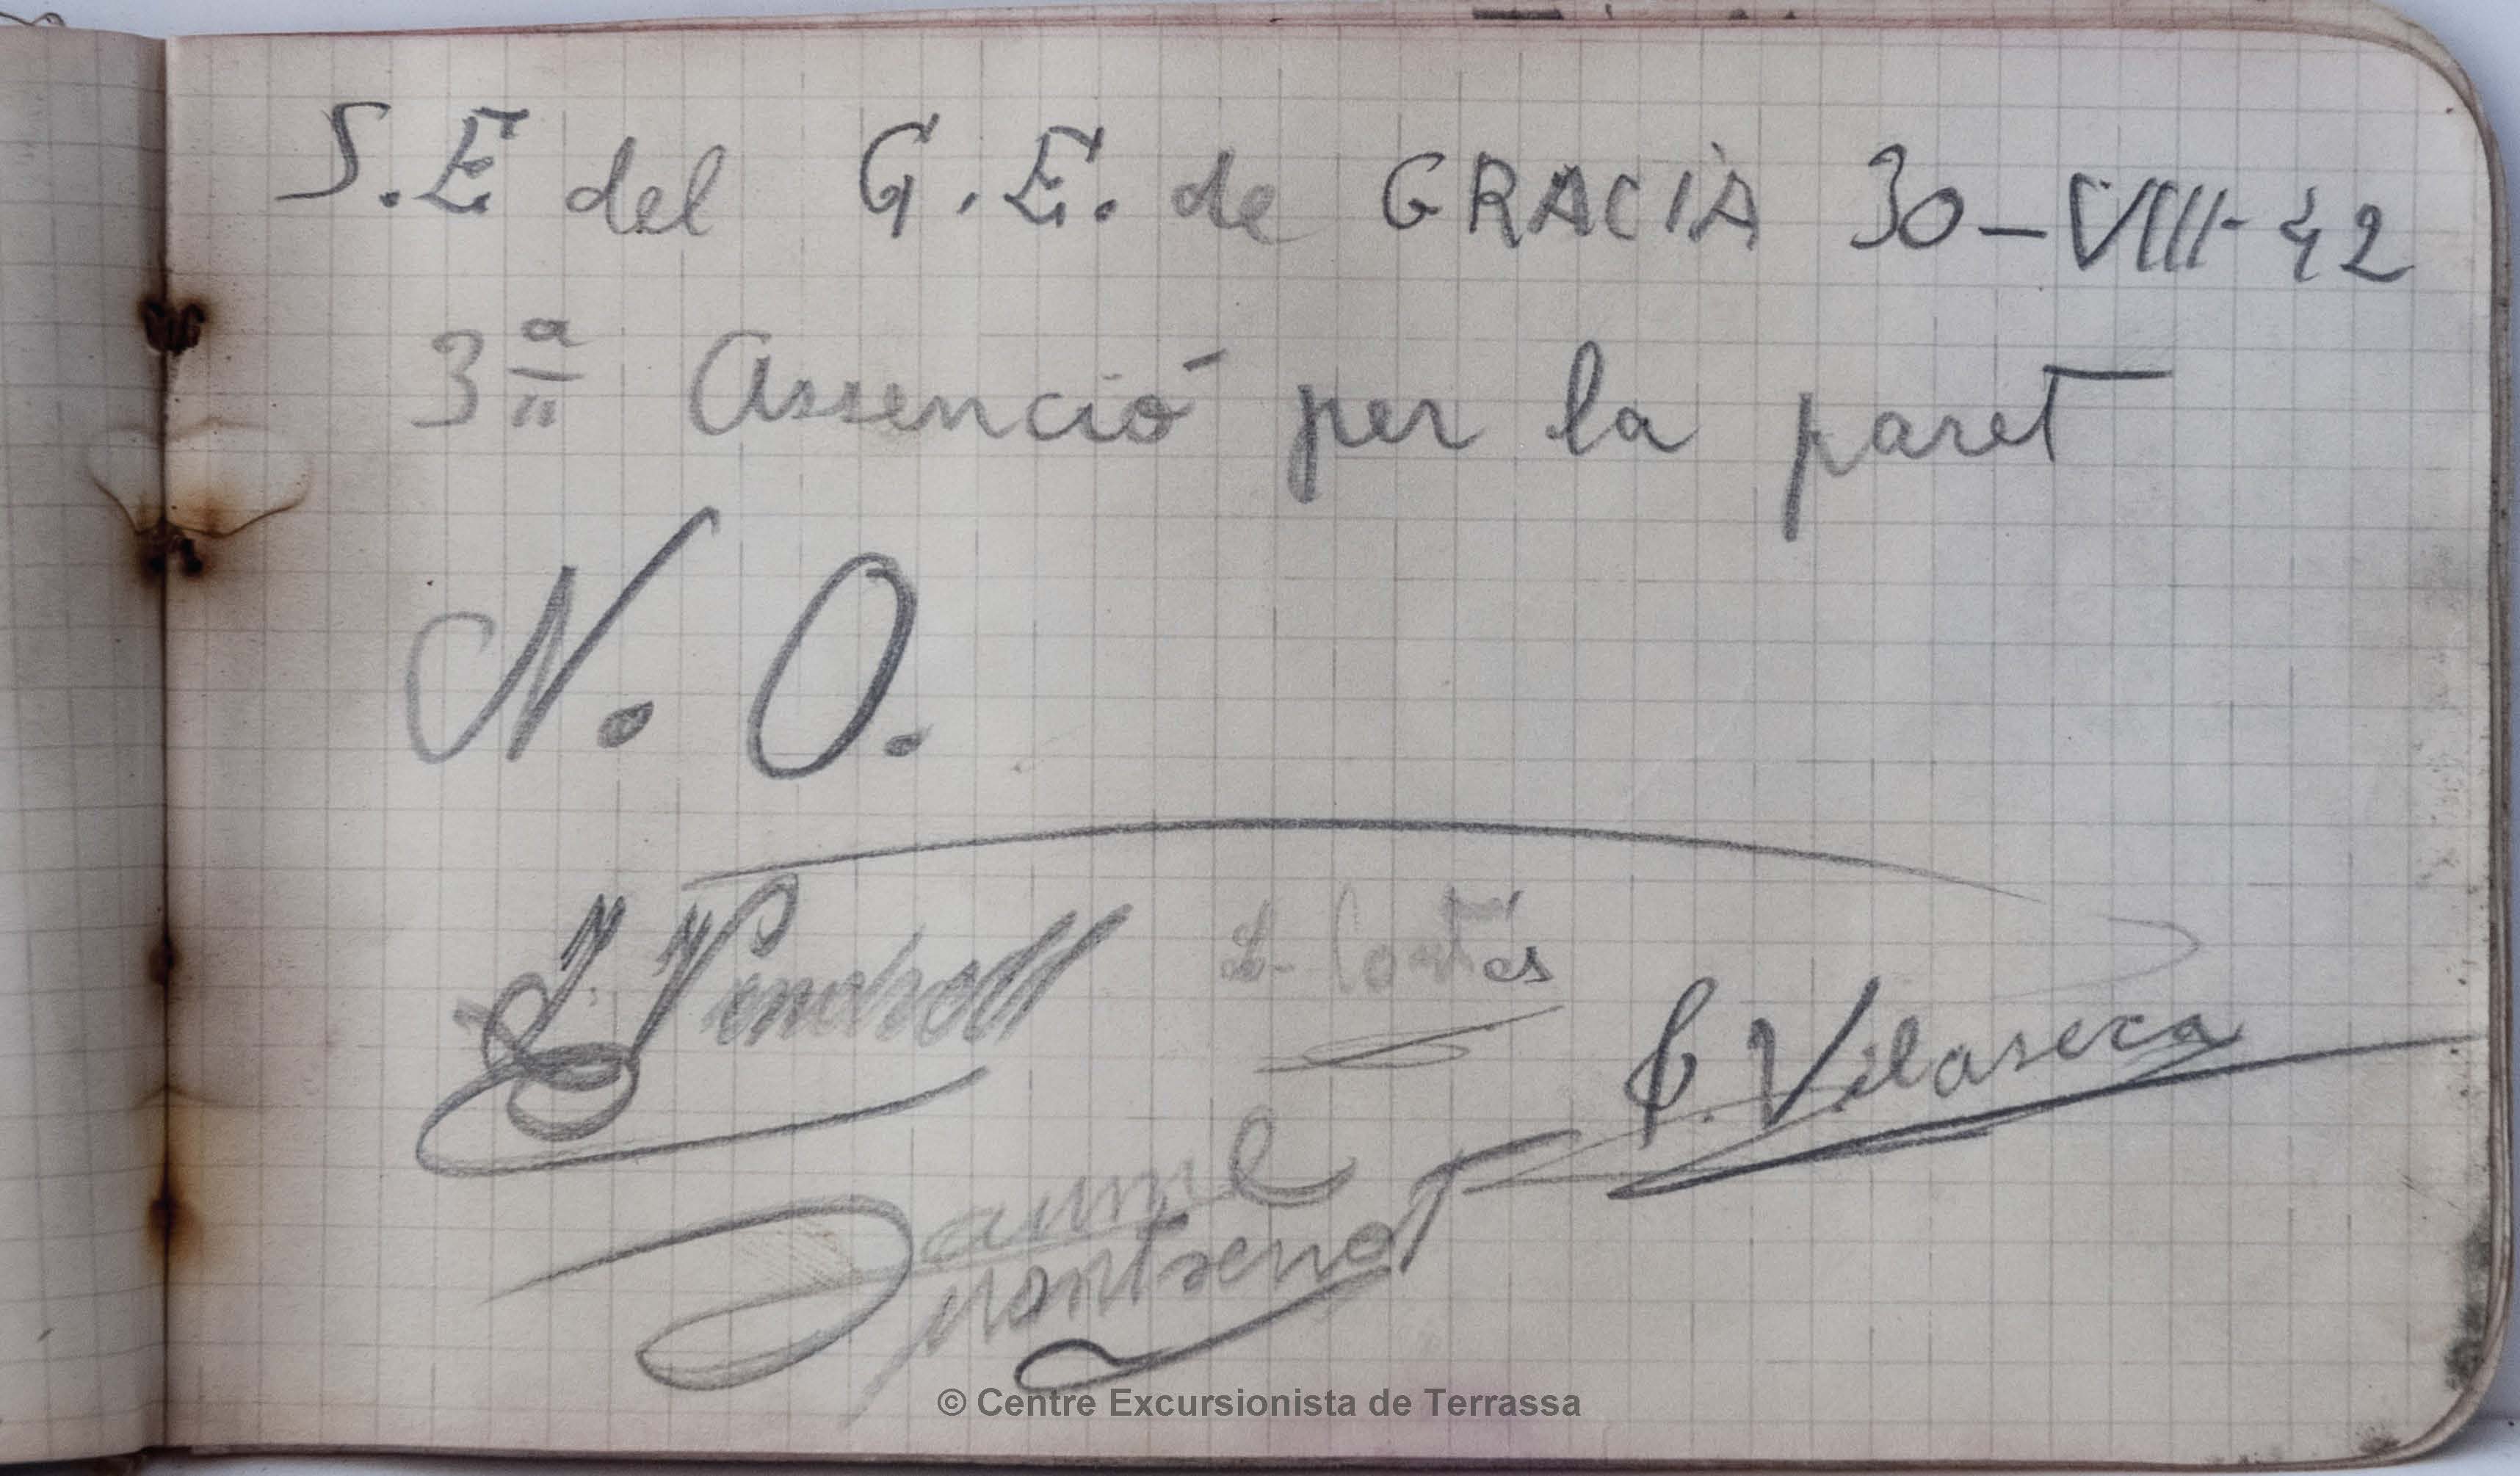 S.E del G.E. de GRACIÀ 30-VIII-42
3ª Assenció per la paret
N. O.
Cortés
Vilaseca
Jaume
Montserrat
© Centre Excursionista de Terrassa